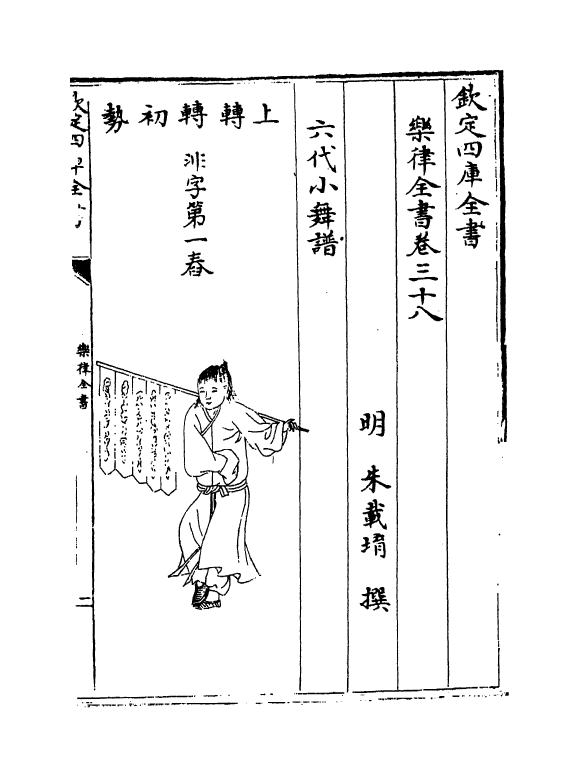 欽定四庫全書
樂律全書卷三十八
明 朱載堉 撰
六代小舞譜
上轉轉初勢
非字第一舂
欽定四庫全書
樂律全書